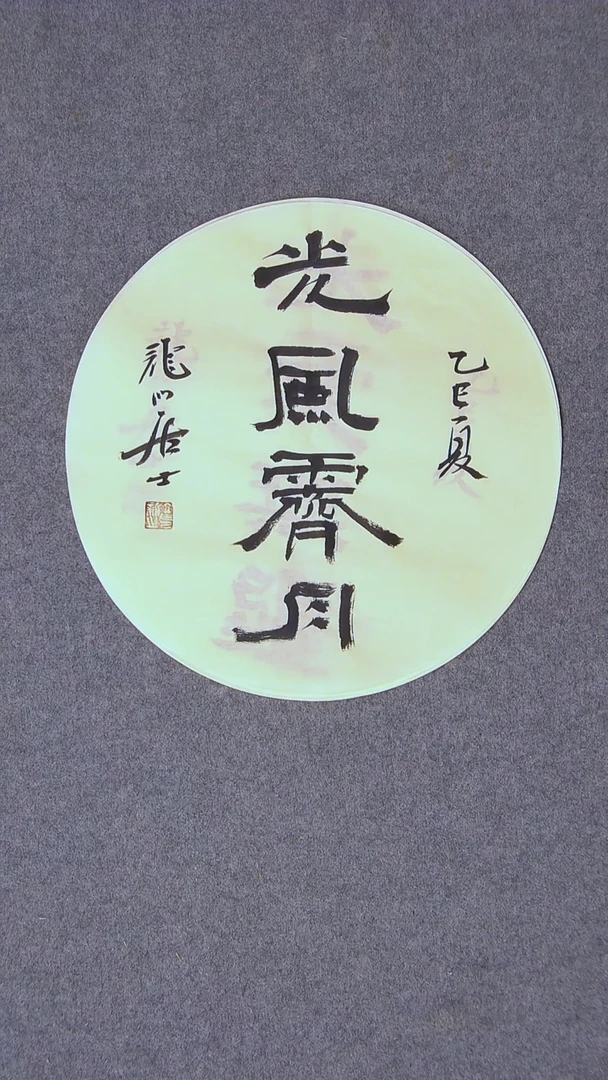 乙巳夏
光風霽月
龍門居士